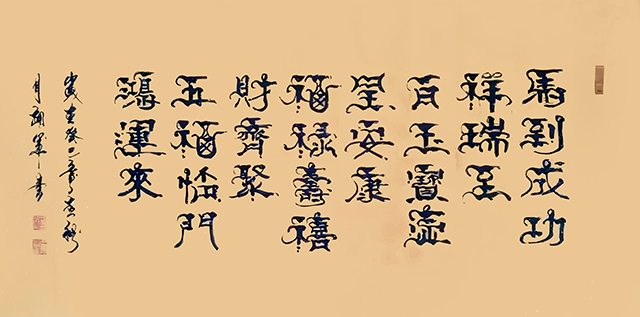 馬到成功
祥瑞至
百玉寶
呈安康
福祿壽禧
財齊聚
五福临門
鴻運來
歲在癸巳年